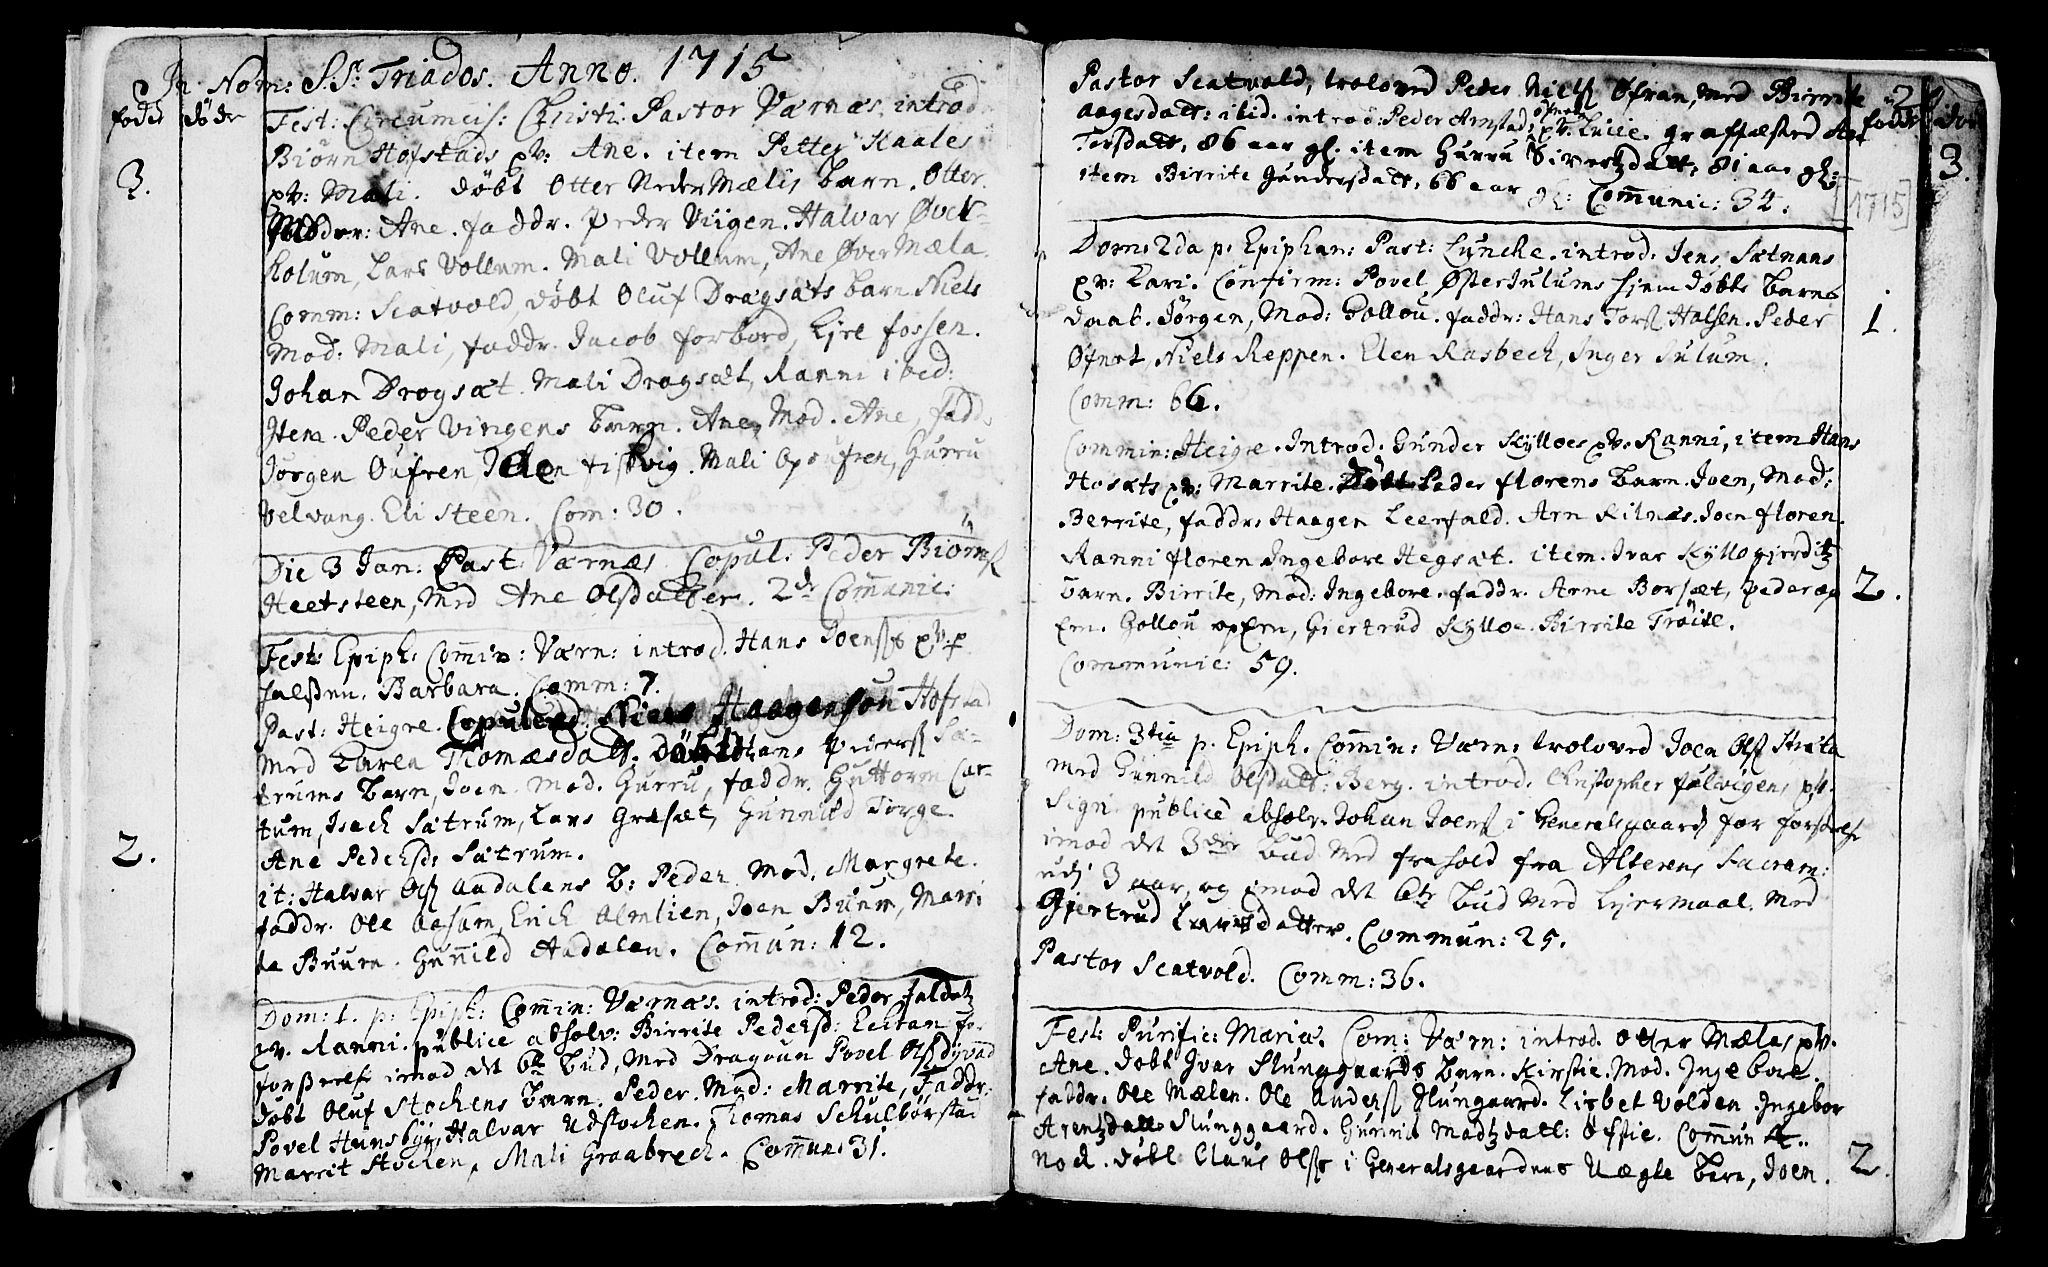 In Nom: S.S. Triados. Anno. 1715
fødde døde
Fest: Circumcis: Christi: Pastor Værnæs. introd.
Biørn Hofstads pv: Ane. item Petter Haales
3.
pv: Mali. døbt Otter Neder Mælis barn. Otter.
Moder: Ane. faddr. Peder Viigen. Halvar Øver-
kolum, Lars Vollum. Mali Vollum, Ane Øver Mæla.
Comm: Scatvold, døbt Oluf Dragsats barn Niels
Mod: Mali, faddr. Jacob forbord, fossen.
Johan Dragsæt. Mali Dragsæt, Ranni ibid:
Item. Peder Viigens barn. Ane, Mod. Ane, fadd.
Jørgen Oufren Mali Opoufren, Gurru
Velvang. Eli Steen. Com: 30.
Die 3 Jan: Past: Værnæs Copul. Peder Biørns
Heetsteen, med Ane Olsdatter. 2de Communic:
Fest: Epiph: Commin: Værn: introd. Hans Joens pv:
halssen. Barbara. Comm: 7.
Past: Heigre. Copulered. Niels Haagensøn Hofstad
med Karen Thomæsdatt. Døbt Hans Sæ-
trums barn, Joen. Mod. Gurru, faddr. Guttorm Car-
tum, Isach Sætrum, Lars Græsæt, Gunnild Torge.
Ane Pedersd: Sætrum.
2.
it: Halvar Ols Aadalens B: Peder. Mod. Margrete.
faddr. Ole Aasum, Erich Almlien, Joen Buum, Mari
te Buurn. Gunnild Aadalen. Commun: 12.
Dom: 1. p. Epiph: Commin: Værnæs. introd: Peder
pv. Ranni. publice absolv: Birrite Pedersd: for
forseelse imod det 6te bud, med Dragoun Povel Ols
1
døbt Oluf Stochens barn. Peder. Mod: Marrite, Faddr:
Povel Hunsbye, Halvar Udstochen. Thomas Schulbørstad
Marrit Stochen, Mali Graabrech. Commun: 31.
Pastor Scatvold, troloved Peder Niels Øfran, med Birrite
2.
Aagesdatt: ibid. introd: Peder Arnstad, pv: Lucie. graffæsted
fødde døde
Torsdatt, 86 aar gl. item Gurru Sivertsdatt, 81 aar gl:
3.
item Birrite Gundersdatt, 66 aar gl: Communic: 34.
[1715]
Dom: 2da p. Epiphan: Past: Luncke. introd. Jens Sætnans
pv: Kari. Confirm: Povel Øster Julums hjemdøbte barn
daab. Jørgen, Mod: Gollou. faddr: Hans Tors Halsen. Peder
1.
Øfnot, Niels Reppen. Elen Rasbech, Inger Julum.
Comm: 66.
Commin: Heigre. Introd. Gunder Kylloes pv. Ranni, item Hans
Hosæts pv: Marrite. Døbt Peder florens barn. Joen, Mod:
Berrite, faddr: Haagen Leerfald. Arn Kilnæs. Joen floren.
Ranni floren Ingebore Hegsæt. item. Ivar Kyllo
barn. Birrite, Mod: Ingebore. faddr. Arne Borsæt, Peder op
2.
Em. Gollou opEm, Giertrud Kylloe. Birrite Trøite.
Communic: 59.
Dom: 3tia p. Epiph. Commin: Værn: troloved Joen Ols
med Gunnild Olsdatt: Berg. introd. Christopher falvigens pv.
Sign. publice absolv. Johan Joens i Generalsgaard for forseelse
imod det 3die bud med frahold fra Alterens Sacram:
udi 3 aar, og imod det 6te bud med Lejermaal med
Gjertrud Larsdatter. Commun: 25.
Pastor Scatvold. Comm: 36.
Fest: Purific: Mariæ. Com: Værn: introd. Otter Mælas pv.
Ane. døbt Ivar Slunggaards barn. Kirstie. Mod. Ingebore.
faddr. Ole Mælen. Ole Anders Slungaard. Lisbet Volden. Ingebor
Arentzdatt Slunggaard. Gunnil Madtzdatt: Øfstie. Commun 4.
Nod. døbt Claus Olss i Generalsgaardens Uægte barn, Joen.
2.